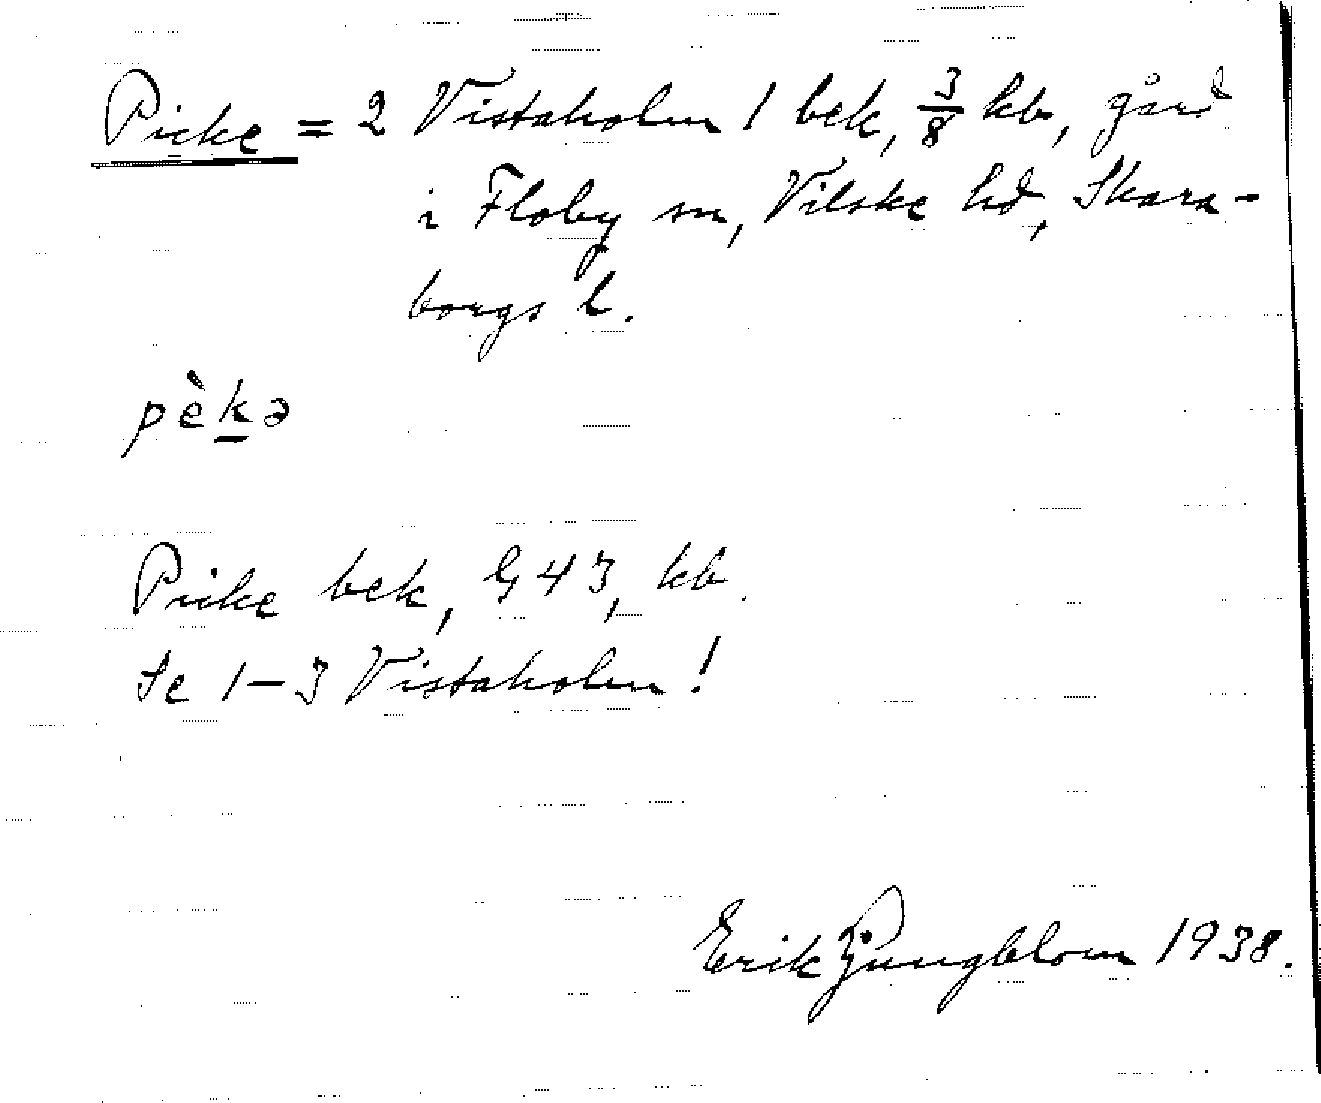 Picke = 2 Vistaholm 1 bek, 3/8 kb, gård
i Floby sn, Vilske hd, Skara-
borgs l.
pèkə
Picke bek, G 43, kb.
Se 1-3 Vistaholm!
Erik Ljungblom 1938.